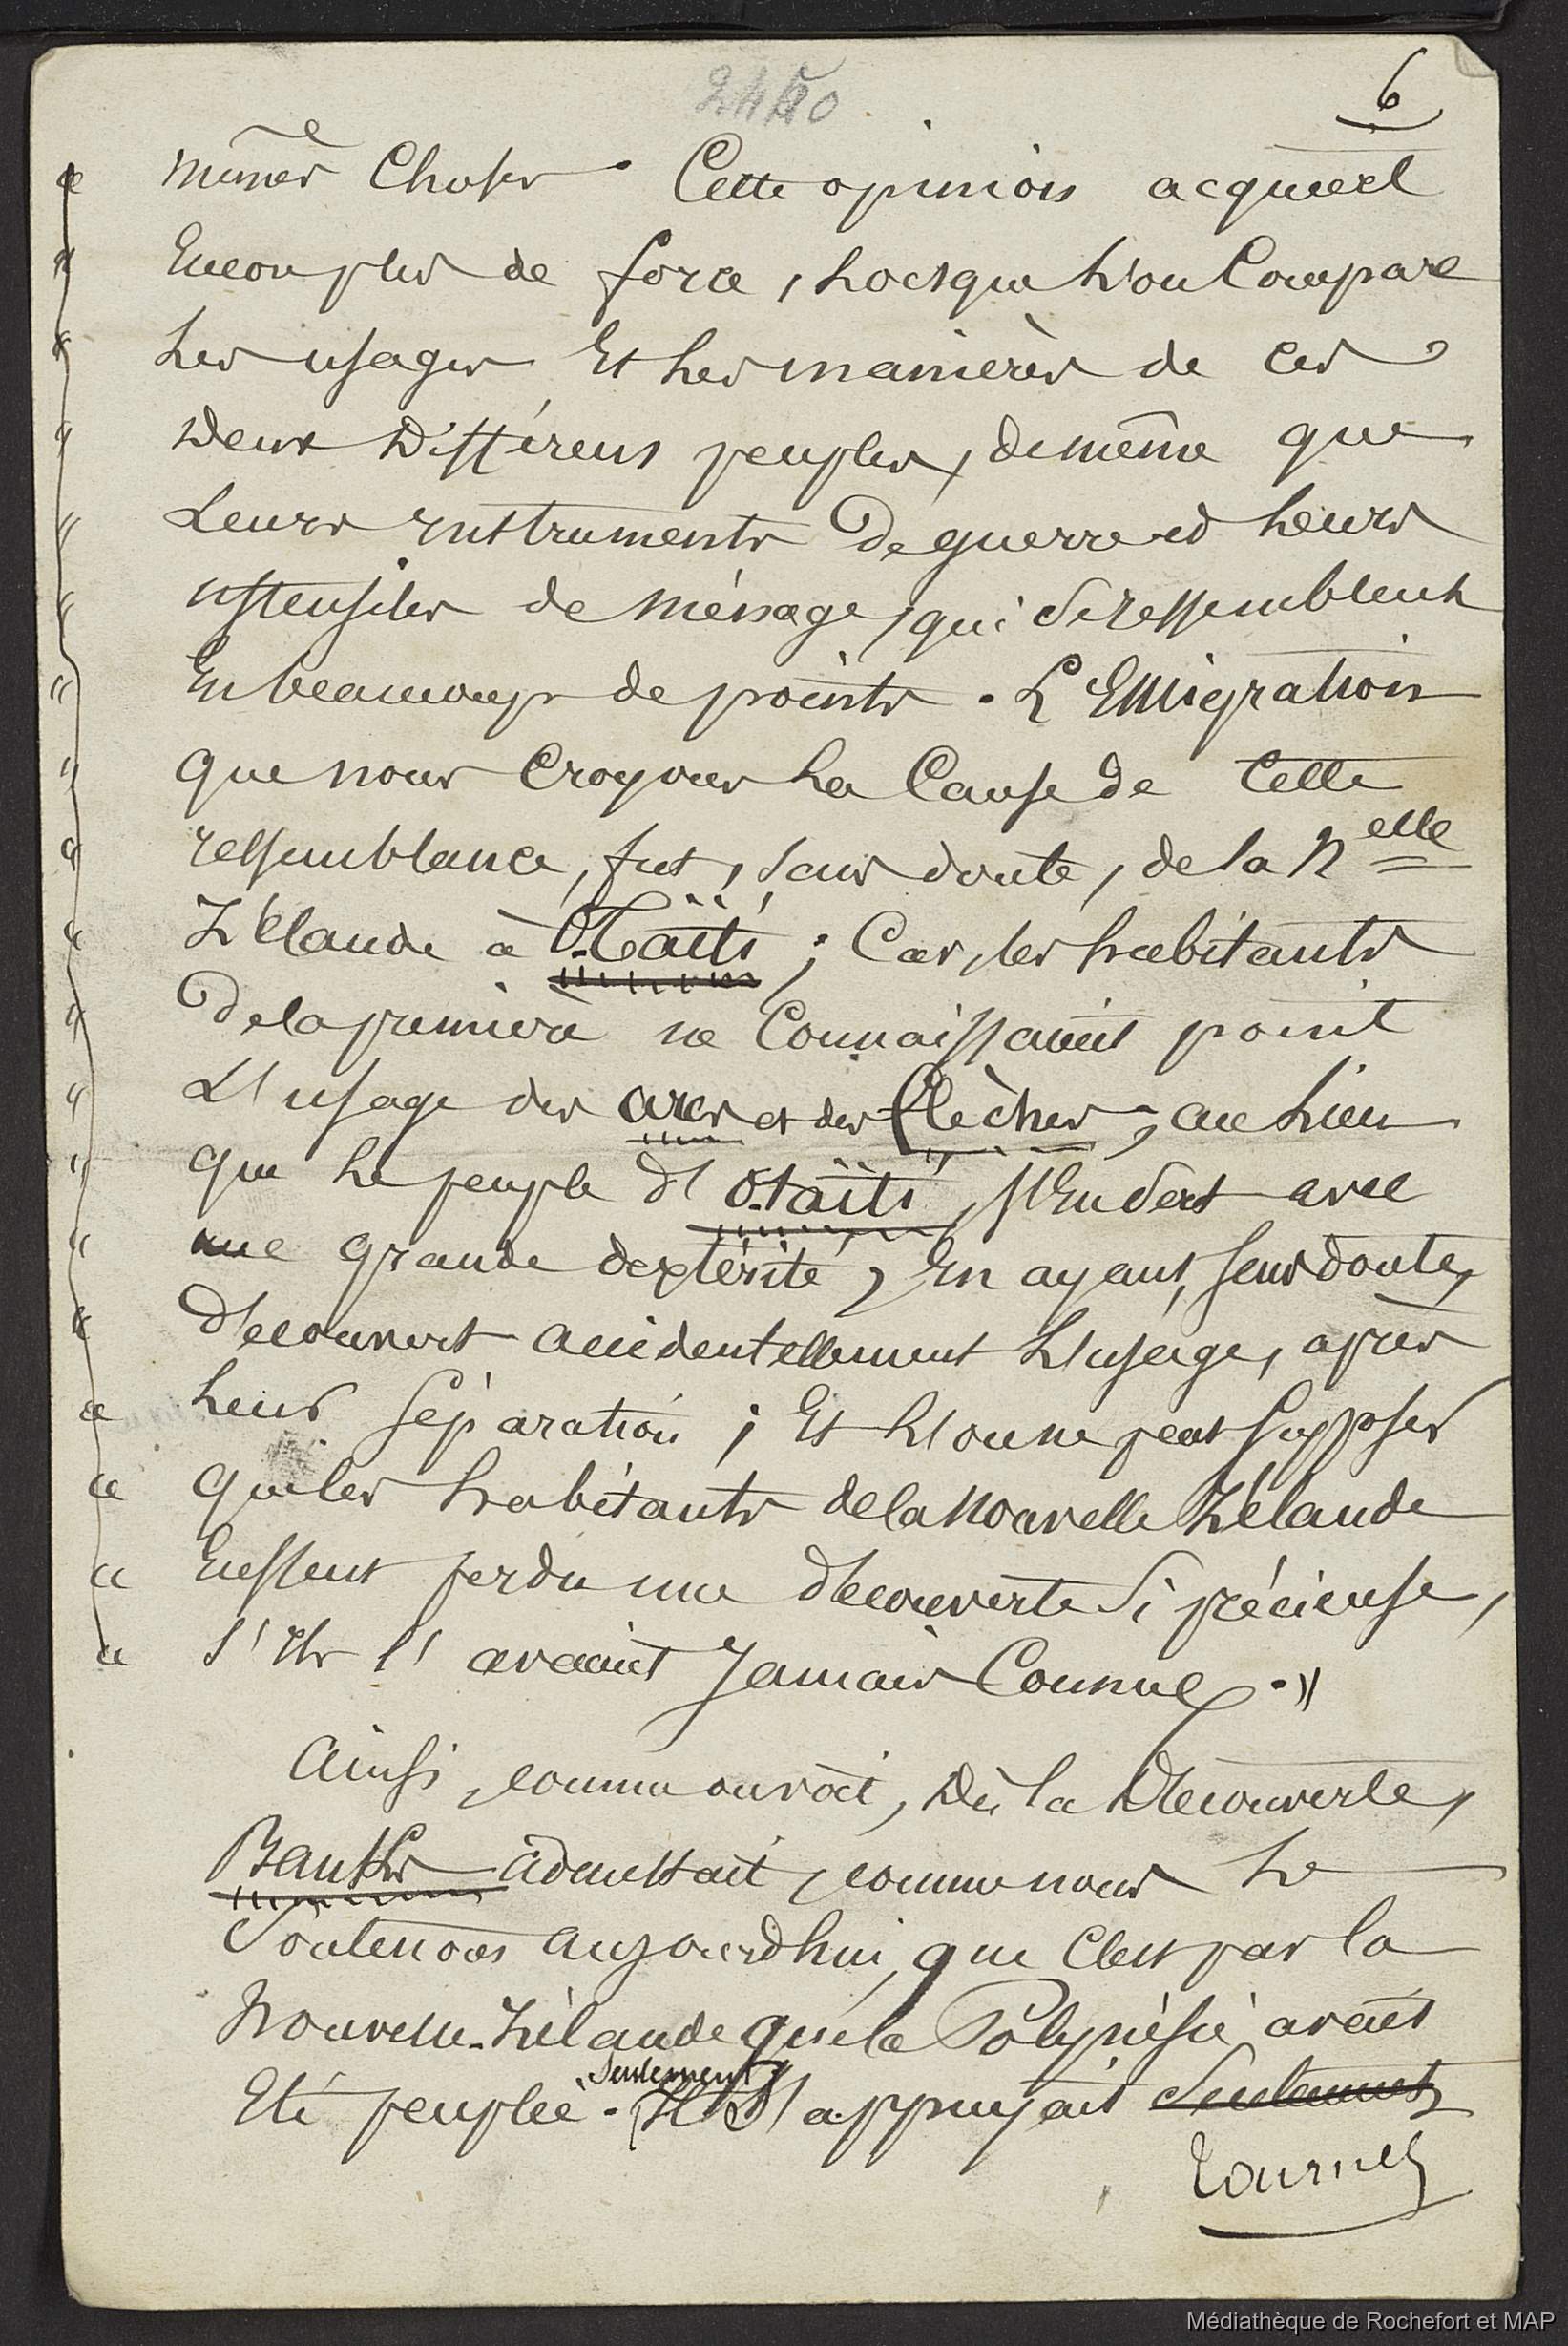 6
« mêmes Choses. Cette opinion acquiert
« Encor plus de force, Lorsque L'on Compare
« Les usages Et Les manières de Ces
« Deux Différens peuples, de même que
« Leurs instruments De guerre et Leurs
« ustensiles de ménage, qui Se ressemblent
« En beaucoup de points. L'Emigration
« que nous Croyons La Cause de Cette
« ressemblance, fut, sans doute, de la Nelle
« Zélande à O.Taïti ; Car, les habitants
« De la première ne Connaissaient point
« L'usage des arcs et des flèches, au Lieu
« que Le peuple d'O.taïti, s'En sert avec
« une grande dextérité, En ayant, sans doute,
« Découvert accidentellement L'usage, après
« Leur Séparation ; Et L'on ne peut Supposer
« que les habitants de la Nouvelle Zélande
« Eussent perdu une découverte Si précieuse,
« s'Ils l'avaient Jamais Connue. »
Ainsi, comme on voit, Dès la Découverte,
Banks admettait, comme nous Le
Soutenons aujourdhui, que C'est par la
Nouvelle-Zélande que la Polynésie avait
Eté peuplée. Il S'appuyait seulement Seulement
Tournez
Médiathèque de Rochefort et MAP